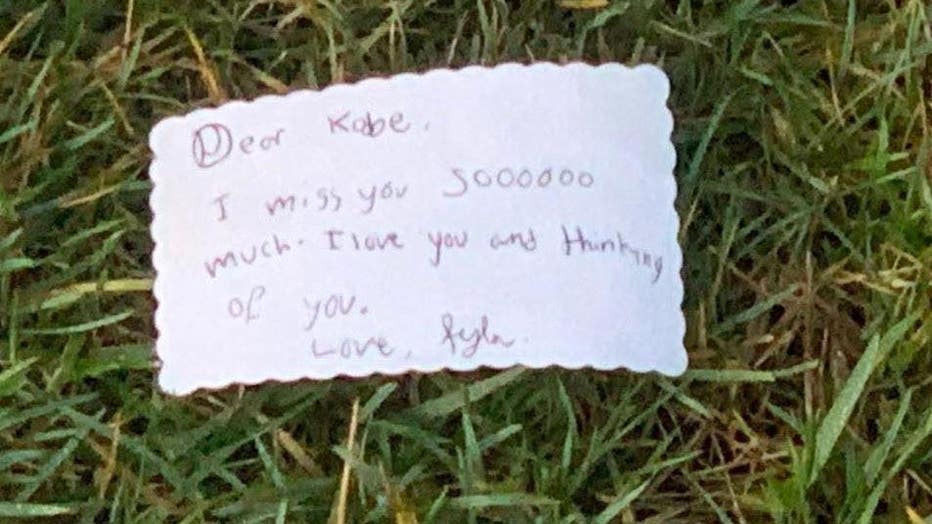 Dear Kobe.
I miss you Soooooo
much. I love you and thinking
of you.
Love, Ryla.